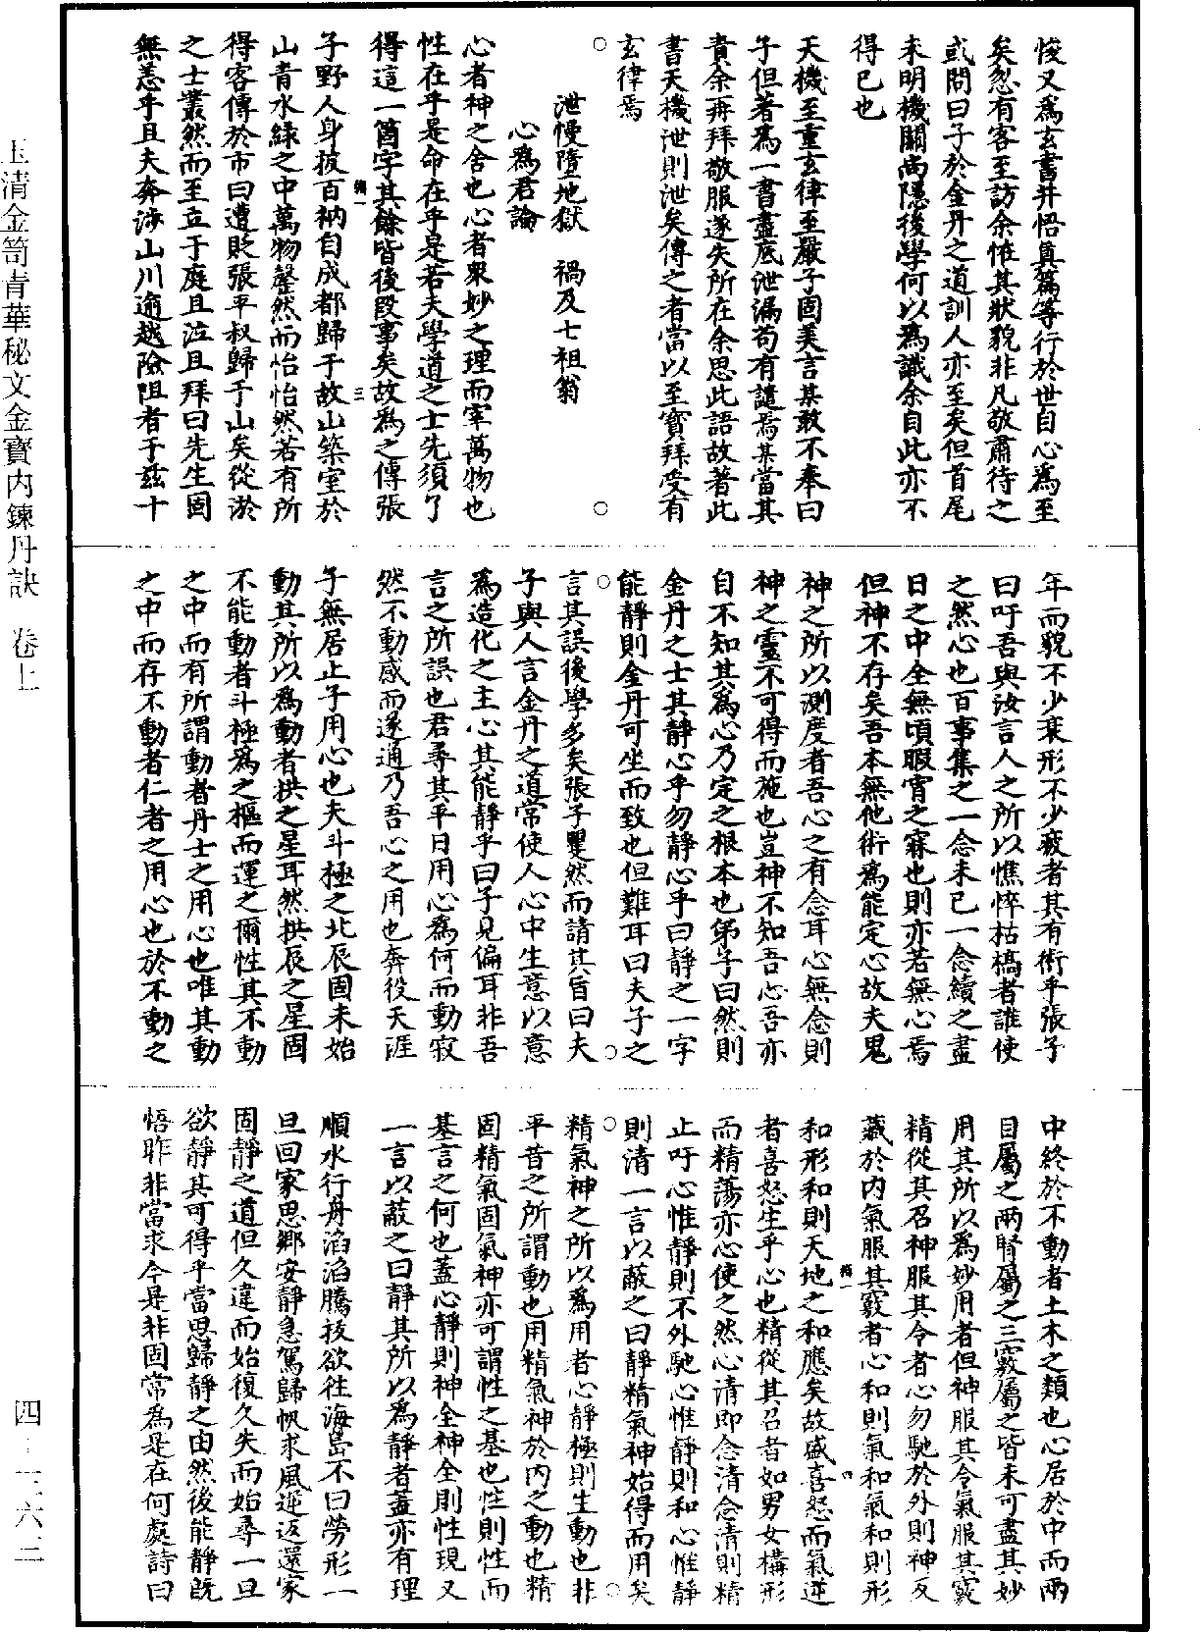 悛又為玄書并悟真篇等行於世自心為至
矣忽有客至訪余恠其狀貌非凡敬肅待之
或問曰子於金丹之道訓人亦至矣但首尾
未明機關尚隱後學何以為識余自此亦不
得已也
天機至重玄律至嚴子固美言某敢不奉曰
子但著為一書盡底泄漏苟有譴焉某當其
責余再拜敬服遂失所在余思此語故著此
書天機泄則泄矣傳之者當以至寶拜受有
玄律焉
泄慢墮地獄　禍及七祖翁
心為君論
心者神之舍也心者衆妙之理而宰萬物也
性在乎是命在乎是若夫學道之士先須了
得這一箇字其餘皆後段事矣故為之傳張
子野人身披百衲自成都歸于故山築室於
山青水綠之中萬物罄然而怡怡然若有所
得客傳於市曰遭貶張平叔歸于山矣從游
之士叢然而至立于庭且泣且拜曰先生固
無恙乎且夫奔涉山川逾越險阻者于茲十
年而貌不少衰形不少疲者其有術乎張子
曰吁吾與汝言人之所以憔悴枯槁者誰使
之然心也百事集之一念未已一念續之盡
日之中全無頃暇宵之寐也則亦若無心焉
但神不存矣吾本無他術為能定心故夫鬼
神之所以測度者吾心之有念耳心無念則
神之靈不可得而施也豈神不知吾心吾亦
自不知其為心乃定之根本也弟子曰然則
金丹之士其靜心乎勿靜心乎曰靜之一字
能靜則金丹可坐而致也但難耳曰夫子之
言其誤後學多矣張子矍然而請其旨曰夫
子與人言金丹之道常使人心中生意以意
為造化之主心其能靜乎曰子見偏耳非吾
言之所誤也君尋其平日用心為何而動寂
然不動感而遂通乃吾心之用也奔役天涯
子無居止子用心也夫斗極之北辰固未始
動其所以為動者拱之星耳然拱辰之星固
不能動者斗極為之樞而運之爾性其不動
之中而有所謂動者丹士之用心也唯其動
之中而存不動者仁者之用心也於不動之
中終於不動者土木之類也心居於中而兩
目屬之兩腎屬之三竅屬之皆未可盡其妙
用其所以為妙用者但神服其令氣服其竅
精從其召神服其令者心勿馳於外則神反
藏於內氣服其竅者心和則氣和氣和則形
和形和則天地之和應矣故盛喜怒而氣逆
者喜怒生乎心也精從其召者如男女構形
而精蕩亦心使之然心清即念清念清則精
止吁心惟靜則不外馳心惟靜則和心惟靜
則清一言以蔽之曰靜精氣神始得而用矣
精氣神之所以為用者心靜極則生動也非
平昔之所謂動也用精氣神於內之動也精
固精氣固氣神亦可謂性之基也性則性而
基言之何也蓋心靜則神全神全則性現又
一言以蔽之曰靜其所以為靜者蓋亦有理
順水行舟滔滔騰拔欲往海島不曰勞形一
旦回家思鄉安靜急駕歸帆求風逆返還家
固靜之道但久違而始復久失而始尋一旦
欲靜其可得乎當思歸靜之由然後能靜旣
悟昨非當求今是非固常為是在何處詩曰
玉清金笥青華秘文金寶內鍊丹訣　卷上